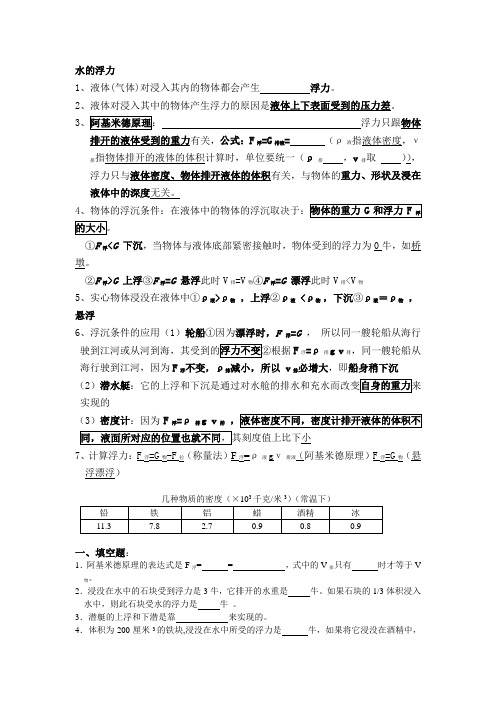 水的浮力
1、液体(气体)对浸入其内的物体都会产生 浮力。
2、液体对浸入其中的物体产生浮力的原因是液体上下表面受到的压力差。
3、阿基米德原理: 浮力只跟物体
排开的液体受到的重力有关，公式：F浮=G排液= （ρ液指液体密度，v
排指物体排开的液体的体积计算时，单位要统一（ρ取 ，v排取 )），
浮力只与液体密度、物体排开液体的体积有关，与物体的重力、形状及浸在
液体中的深度无关。
4、物体的浮沉条件：在液体中的物体的浮沉取决于：物体的重力G和浮力F浮
的大小。
①F浮<G下沉，当物体与液体底部紧密接触时，物体受到的浮力为0牛，如桥
墩。
②F浮>G上浮③F浮=G悬浮此时V排=V物④F浮=G漂浮此时V排<V物
5、实心物体浸没在液体中①ρ液>ρ物 ，上浮②ρ液 <ρ物，下沉③ρ液＝ρ物 ，
悬浮
6、浮沉条件的应用（1）轮船①因为漂浮时，F浮=G ， 所以同一艘轮船从海行
驶到江河或从河到海，其受到的浮力不变②根据F浮=ρ液g v排，同一艘轮船从
海行驶到江河，因为F浮不变，ρ液减小，所以 v排必增大，即船身稍下沉
（2）潜水艇：它的上浮和下沉是通过对水舱的排水和充水而改变自身的重力来
实现的
（3）密度计：因为F浮=ρ液g v排 ，液体密度不同，密度计排开液体的体积不
同，液面所对应的位置也就不同，其刻度值上比下小
7、计算浮力：F浮=G物-F拉（称量法）F浮=ρ液gv排液（阿基米德原理）F浮=G物（悬
浮漂浮）
几种物质的密度（×10³千克/米³）（常温下）
铅 铁 铝 蜡 酒精 冰
11.3 7.8 2.7 0.9 0.8 0.9
一、填空题：
1．阿基米德原理的表达式是F浮= = ，式中的V排只有 时才等于V
物。
2．浸没在水中的石块受到浮力是3牛，它排开的水重是 牛。如果石块的1/3体积浸入
水中，则此石块受水的浮力是 牛 。
3．潜艇的上浮和下潜是靠 来实现的。
4．体积为200厘米³的铁块,浸没在水中所受的浮力是 牛，如果将它浸没在酒精中，